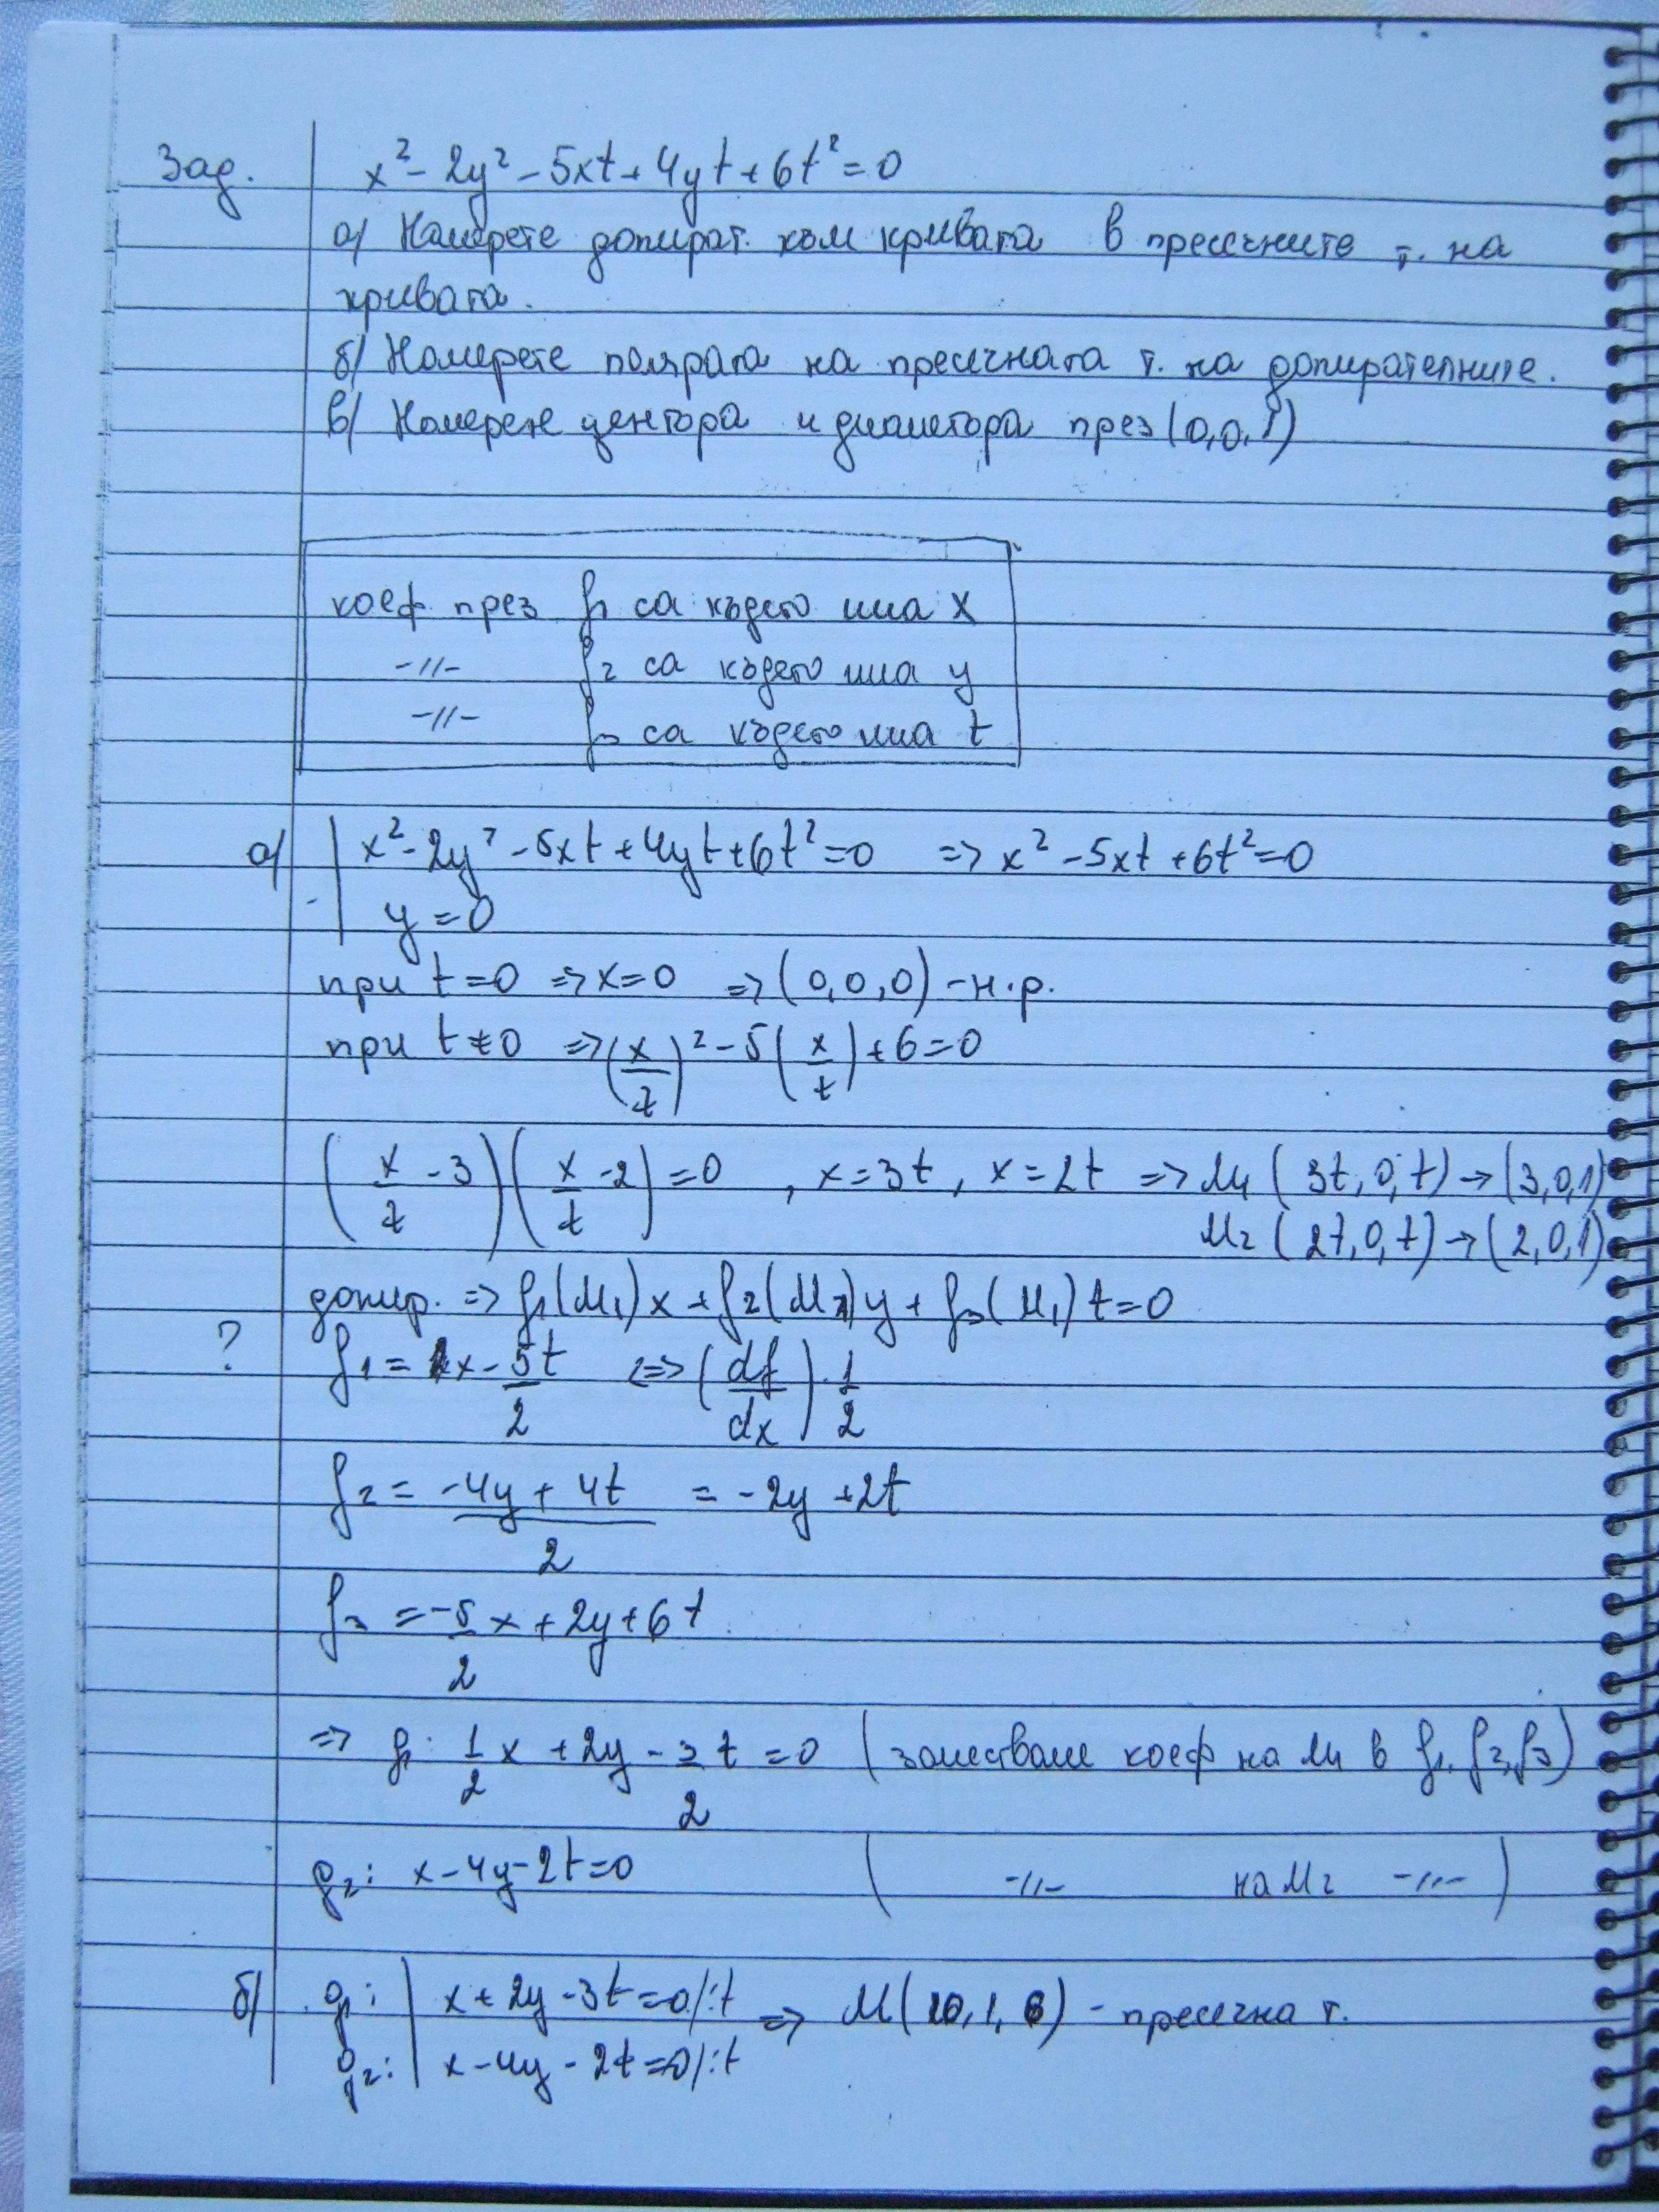 Зад. x² - 2y² - 5xt + 4yt + 6t² = 0
а) Намерете допират. към кривата в пресечните т. на
кривата.
б) Намерете полярата на пресечната т. на допирателните.
в) Намерете центъра и диаметъра през (0,0,1)
коеф. през f₁ са където има x
-//- f₂ са където има y
-//- f₃ са където има t
а) | x² - 2y² - 5xt + 4yt + 6t² = 0 => x² - 5xt + 6t² = 0
| y = 0
при t = 0 => x = 0 => (0,0,0) - н.р.
при t ≠ 0 => (x/t)² - 5(x/t) + 6 = 0
(x/t - 3)(x/t - 2) = 0 , x = 3t, x = 2t => M₁ (3t, 0, t) → (3,0,1)
M₂ (2t, 0, t) → (2,0,1)
допир. => f₁(M₁)x + f₂(M₁)y + f₃(M₁)t = 0
? f₁ = x - 5t/2 <=> (df/dx) · 1/2
f₂ = (-4y + 4t)/2 = -2y + 2t
f₃ = -5/2 x + 2y + 6t
=> g₁: 1/2 x + 2y - 3/2 t = 0 (заместваме коеф на M₁ в f₁, f₂, f₃)
g₂: x - 4y - 2t = 0 ( -//- на M₂ -//- )
б) g₁: | x + 2y - 3t = 0 /:t => M(10, 1, 6) - пресечна т.
g₂: | x - 4y - 2t = 0 /:t